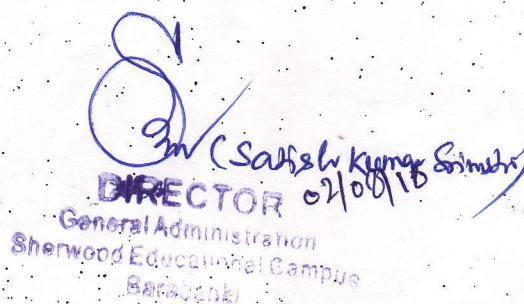 (Satish Kumar
02/08/18
DIRECTOR
General Administration
Sherwood Educational Campus
Barabanki